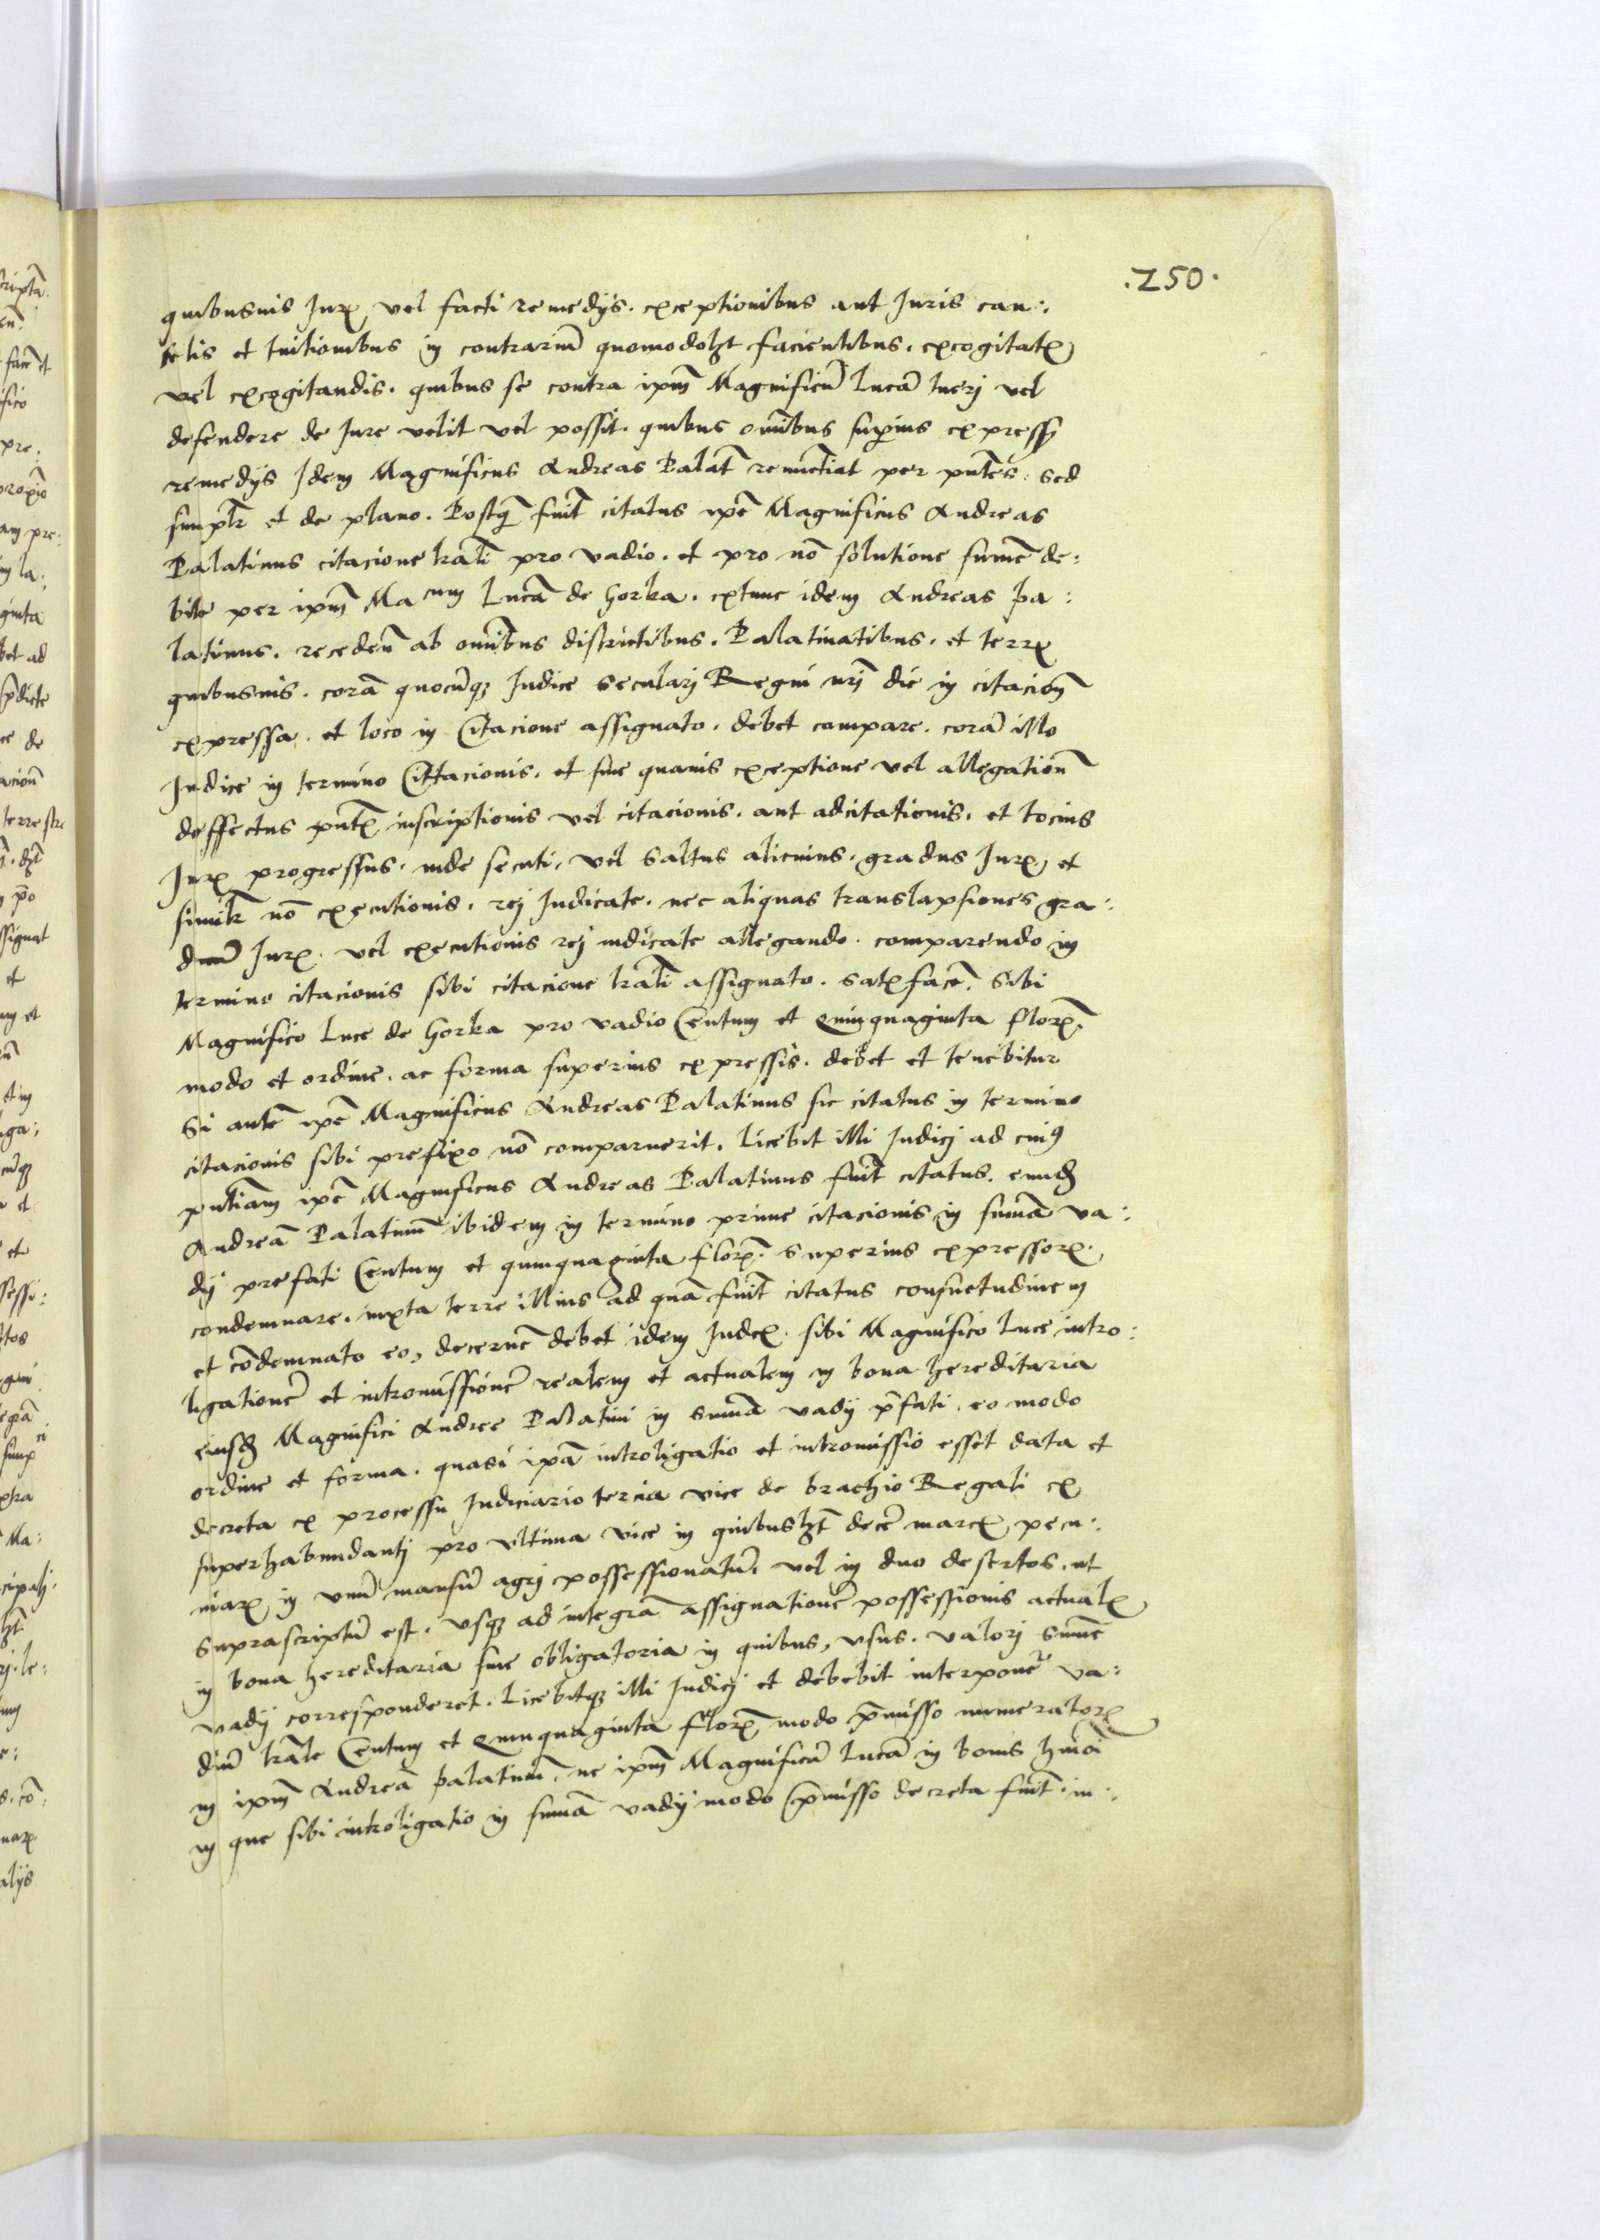 .250.
quibusuis Iurꝭ vel facti remedijs. exceptionibus aut Iuris cau:
telis et tuitionibus in contrariũ quomodolꝫt facientibus. excogitatꝭ
vel excogitandis. quibus se contra ipm̃ Magnificũ Lucã tuerj vel
defendere de Iure velit vel possit. quibus om̃ibus supius express̃
remedijs Idem Magnificus Andreas Palat̃ renũctiat per pñtes. sed
simplr̃ et de plano. Postq̃ fuit̃ citatus ipẽ Magnificus Andreas
Palatinus citacione lr̃ali pro vadio. et pro nõ solutione sum̃e de:
bite per ipm̃ Ma cum Lucã de Gorka. extunc idem Andreas Pa:
latinus. recedeñ ab om̃ibus districtibus. Palatinatibus. et terrꝭ
quibusuis. corã quocũqꝫ Iudice secularj Regni nrj̃ die in citacioñ
expressa. et loco in Citacione assignato. debet compare. corã illo
Iudice in termino Cittacionis. et sine quauis exceptione vel allegatioñ
deffectus pñtꝭ inscriptionis vel citacionis. aut adcitationis. et tocius
Iurꝭ progressus. inde secuti. vel saltus alicuius. gradus Iurꝭ et
similr̃ nõ executionis. rej Iudicate. nec aliquas translapsiones gra:
duũ Iurꝭ. vel executionis rej iudicate allegando. comparendo in
termino citacionis sibi citacione lr̃ali assignato. satꝭfacẽ. sibi
Magnifico Luce de Gorka pro vadio Centum et Quinquaginta florꝭ.
modo et ordine. ac forma superius expressis. debet et tenebitur
Si autẽ ipẽ Magnificus Andreas Palatinus sic citatus in termino
citacionis sibi prefixo nõ comparuerit. licebit illi Iudicj ad cuiꝯ
pñtiam ipẽ Magnificus Andreas Palatinus fuit̃ citatus. eundꝫ
Andreã Palatinũ ibidem in termino prime citacionis in sum̃ã va:
dij prefati Centum et quinquaginta florꝭ. superius expressorꝭ.
condemnare. iuxta terre illius ad quã fuit̃ citatus consuetudinem
et cõdemnato eo, decernẽ debet idem Iudex. sibi Magnifico Luce intro:
ligationẽ et intromissionẽ realem et actualem in bona hereditaria
eiusdꝫ Magnifici Andree Palatini in sum̃ã vadij p̃fati. eo modo
ordine et forma. quasi ipã introligatio et intromissio esset data et
decreta ex processu Iudiciario tercia vice de brachio Regali ex
superhabundantj pro vltima vice in quibuslꝫt decẽ marcꝭ pecu:
niarꝭ in vnũ mansũ agrj possessionatũ. vel in duo desertos. ut
suprascriptũ est. vsqꝫ ad integrã assignationẽ possessionis actualꝭ
in bona hereditaria siue obligatoria in quibus, vsus. valorj sum̃e
vadij corresponderet. Licebitqꝫ illi Iudicj et debebit interponẽ va:
diũ lr̃ale Centum et Quinquaginta florꝭ modo p̃misso numeratorꝭ
in ipm̃ Andreã palatinũ, ne ipm̃ Magnificũ Lucã in bonis hmõi
in que sibi introligatio in sum̃ã vadij modo p̃misso decreta fuit̃. in: